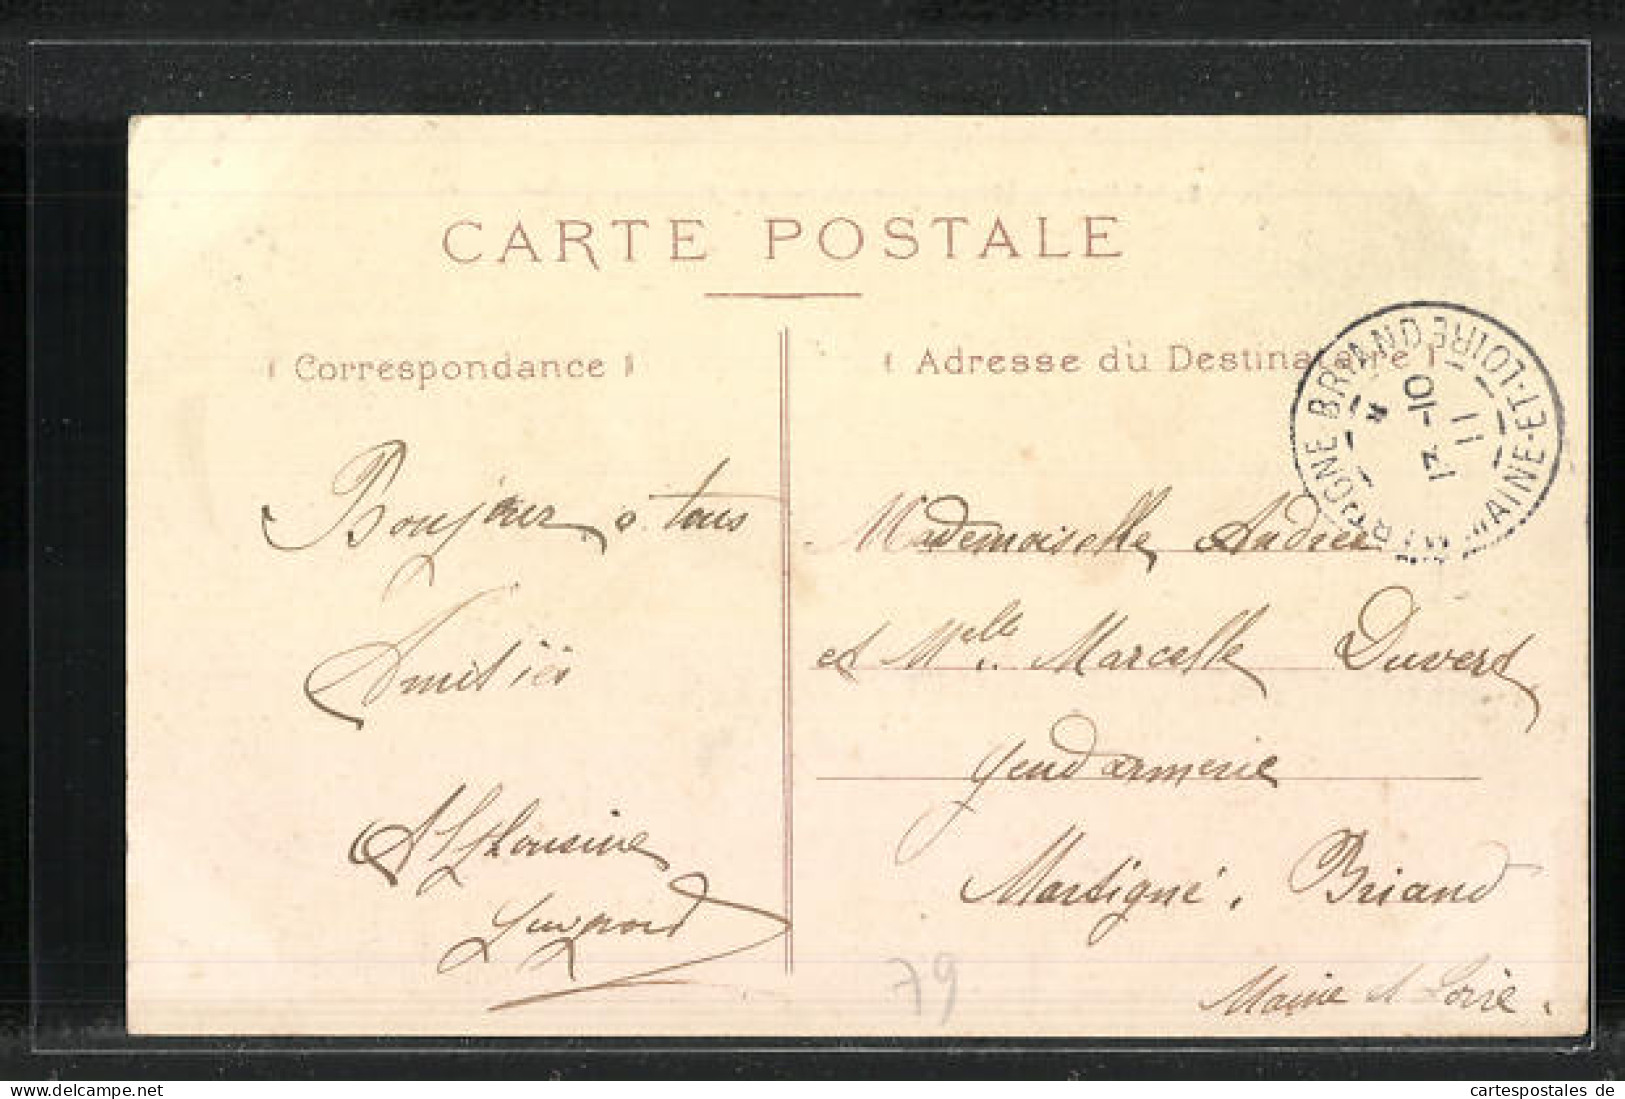 CARTE POSTALE
Correspondance
Adresse du Destinataire
Bonjour a tous
Amitiés
Mademoiselle Andrée
et Mlle Marcelle Duverd
Gendarmerie
Martigné. Briand
Maine et Loire.
79
MARTIGNE BRIAND MAINE-ET-LOIRE
17 -10
11
cartespostales de